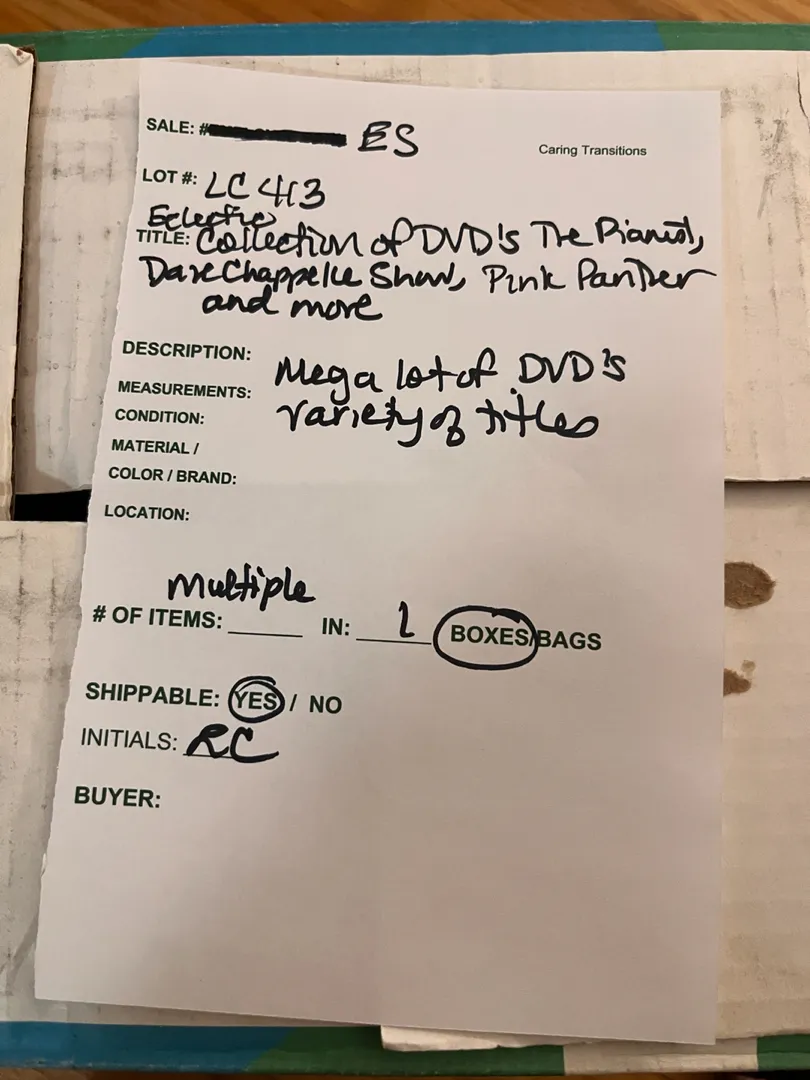 SALE: # ES
Caring Transitions
LOT #: LC 413
Eclectic
TITLE: Collection of DVD's The Pianist,
Dave Chappelle Show, Pink Panther
and more
DESCRIPTION: Mega lot of DVD's
MEASUREMENTS: variety of titles
CONDITION:
MATERIAL /
COLOR / BRAND:
LOCATION:
multiple
# OF ITEMS: ______ IN: 1 BOXES/BAGS
SHIPPABLE: YES / NO
INITIALS: RC
BUYER: